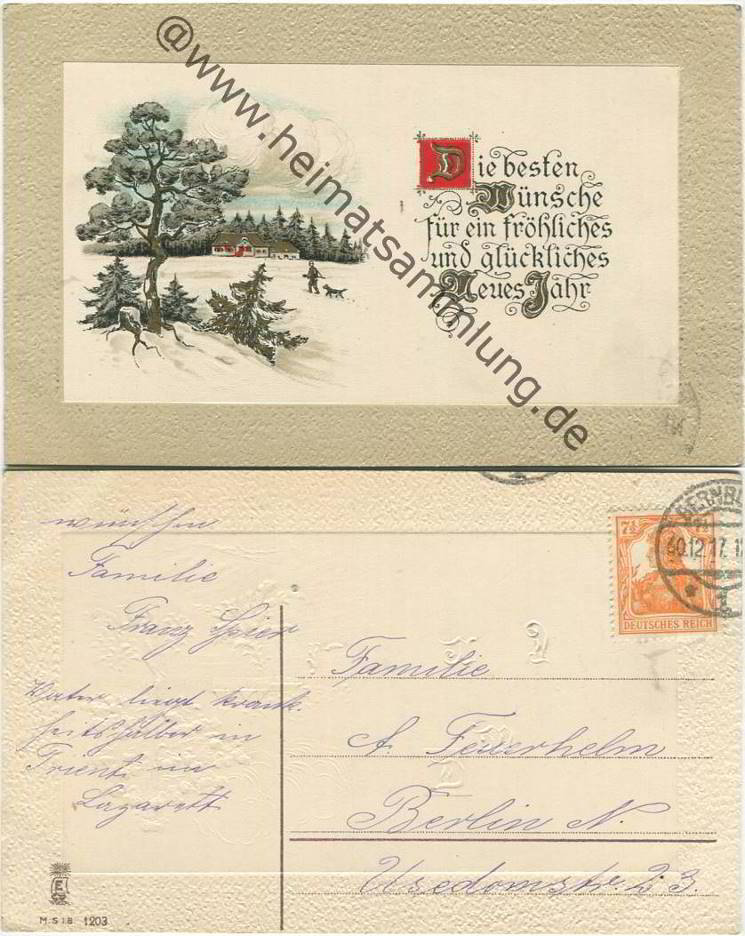 @www.heimatsammlung.de
Die besten
Wünsche
für ein fröhliches
und glückliches
Neues Jahr
wünschen
Familie
Franz Speer
Vater liegt krank-
heitshalber in
Trient im
Lazarett
7½ 7½
DEUTSCHES REICH
BERNBU
30.12.17. 1
Familie
A. Feuerhelm
Berlin N.
Usedomstr. 23.
E
M.S.i.B. 1203